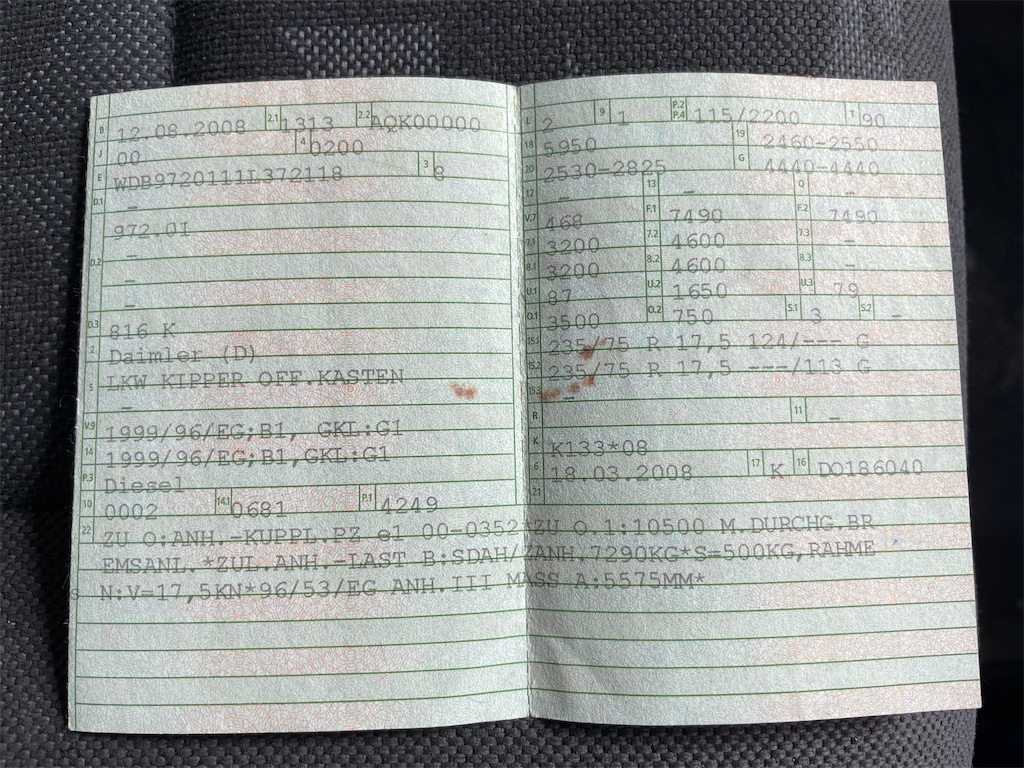 B 12.08.2008 2.1 1313 2.2 AQK00000
J 00 4 0200
E WDB9720111L372118 3 8
D.1 -
972.01
D.2 -
-
-
D.3 816 K
2 Daimler (D)
5 LKW KIPPER OFF.KASTEN
-
V.9 1999/96/EG;B1, GKL:G1
14 1999/96/EG;B1,GKL:G1
P.3 Diesel
10 0002 14.1 0681 P.1 4249
L 2 9 1 P.2 P.4 115/2200 T 90
18 5950 19 2460-2550
20 2530-2825 G 4440-4440
12 - 13 - Q -
V.7 468 F.1 7490 F.2 7490
7.1 3200 7.2 4600 7.3 -
8.1 3200 8.2 4600 8.3 -
U.1 87 U.2 1650 U.3 79
O.1 3500 O.2 750 S.1 3 S.2 -
15.1 235/75 R 17,5 124/--- G
15.2 235/75 R 17,5 ---/113 G
15.3 -
R 11 -
K K133*08
6 18.03.2008 17 K 16 DO186040
21
22 ZU O:ANH.-KUPPL.PZ e1 00-0352*ZU O.1:10500 M.DURCHG.BR
EMSANL.*ZUL.ANH.-LAST B:SDAH/ZANH.7290KG*S=500KG,RAHME
N:V=17,5KN*96/53/EG ANH.III MASS A:5575MM*